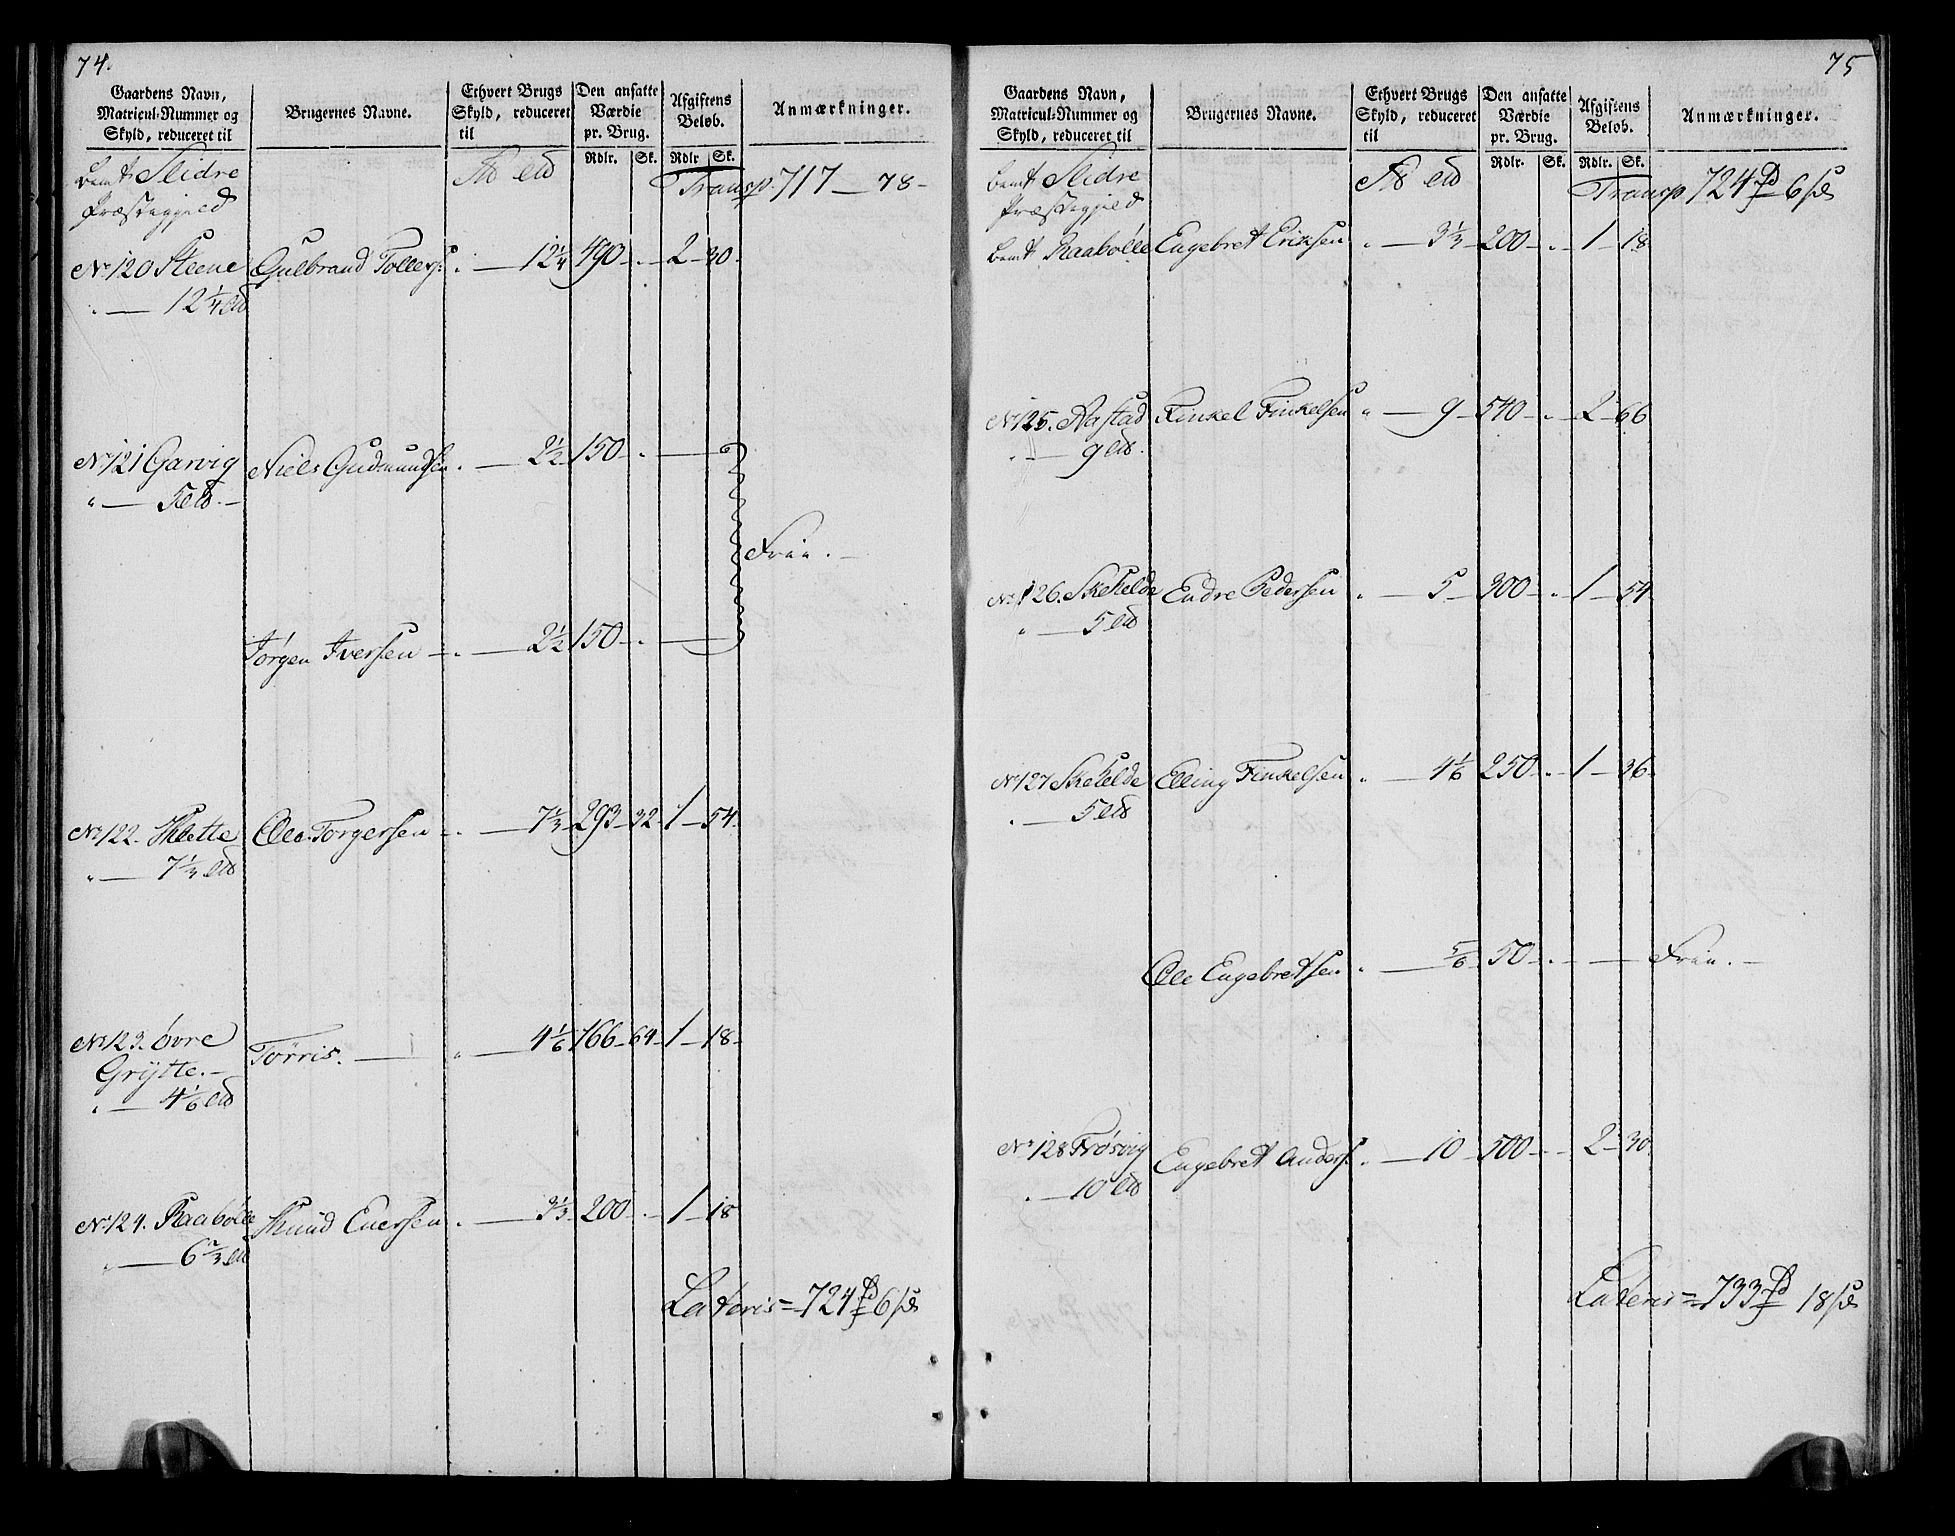 74.
Gaardens Navn, Matricul-Nummer og Skyld, reduceret til | Brugernes Navne. | Ethvert Brugs Skyld, reduceret til | Den ansatte Værdie pr. Brug. Rdlr. Sk. | Afgiftens Beløb. Rdlr Sk. | Anmærkninger.
bemt Slidre
Præstegjeld
Transp. 717 — 78 -
No 120 Steene Gulbrand Tollefs: " — 12 1/4 490 - " - 2 - 30 -
" — 12 1/4
No 121 Garvig Niels Gudmundsen " — 2 1/2 150 - " —
" — 5
Frie. —
Jörgen Iversen - " — 2 1/2 150 - " —
No 122. Klette Ole Torgersen - " — 7 1/3 293 - 32 - 1 - 54 -
" — 7 1/3
No 123. övre Törris. — " — 4 1/6 166 - 64 - 1 - 18 -
Grÿtte. -
" — 4 1/6
No 124. Raabölle Knud Euersen " — 3 1/3 200 - " - 1 - 18
" — 6 2/3
Lateris = 724 6
75
Gaardens Navn, Matricul-Nummer og Skyld, reduceret til | Brugernes Navne. | Ethvert Brugs Skyld, reduceret til | Den ansatte Værdie pr. Brug. Rdlr. Sk. | Afgiftens Beløb. Rdlr. Sk. | Anmærkninger.
bemt Slidre
Præstegjeld
Transp 724 6
bemt Raabölle Engebret Eriksen " — 3 1/3 200 - " - 1 - 18
No 125. Aastad Finkel Finkelsen " — 9 - 540 - " - 2 - 66
" — 9
No 126. Skekelde Endre Pedersen " — 5 - 300 - " - 1 - 54
" — 5
No 127 Skekelde Elling Finkelsen " — 4 1/6 250 - " - 1 - 36
" — 5
Ole Engebretsen " — 5/6 50 - " - — Frie. —
No 128 Frösvig Engebret Anders: " — 10 - 500 - " - 2 - 30
" — 10
Lateris = 733 18